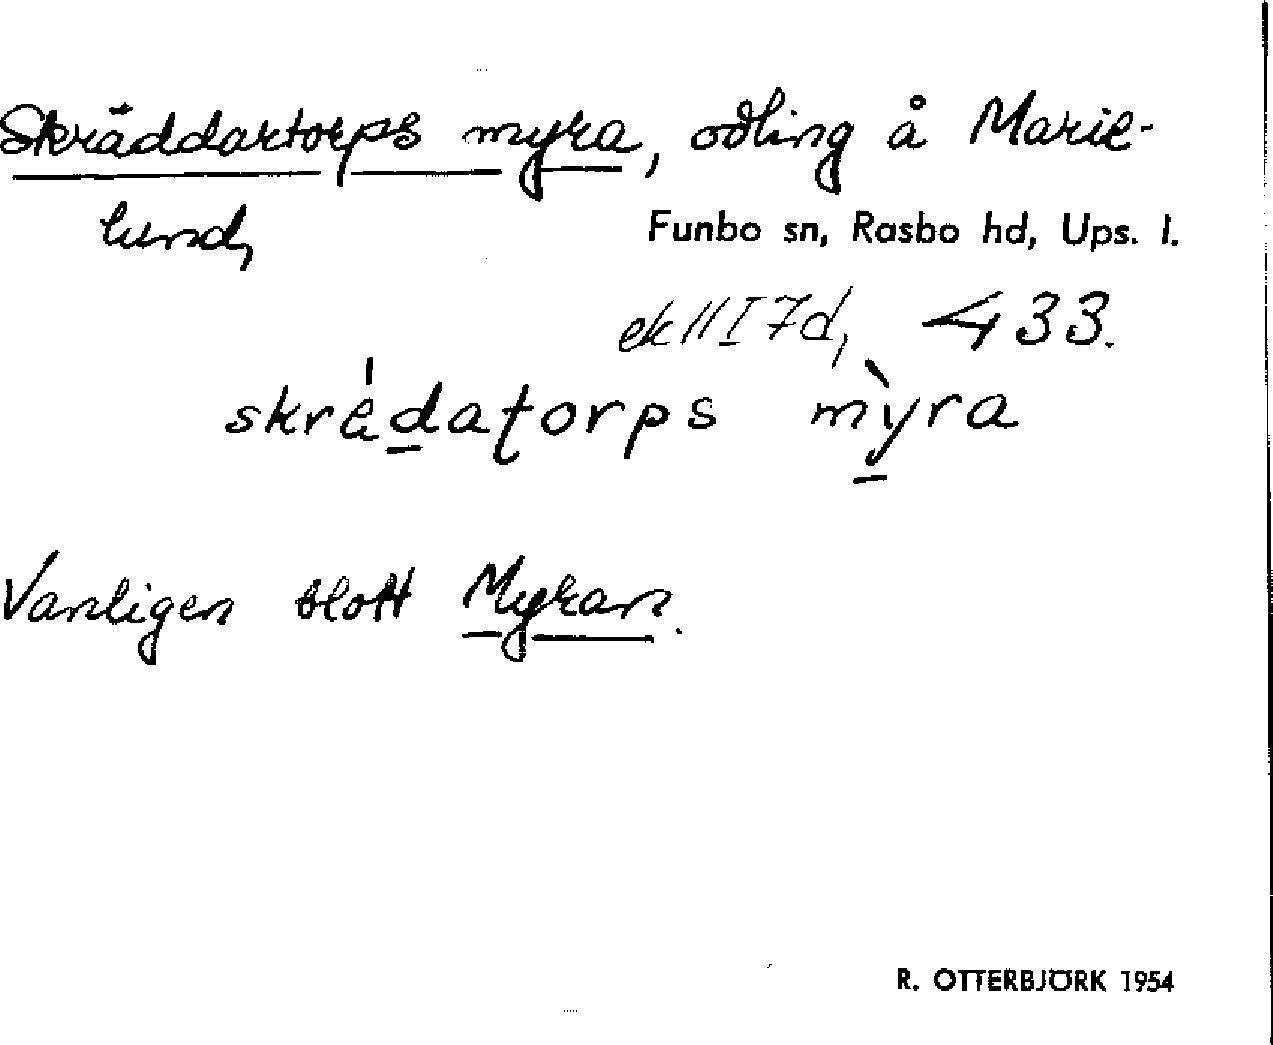 Skräddartorps myra, odling å Marie-
lund,
Funbo sn, Rasbo hd, Ups. l.
ek 11 I 7d, 433.
skrädatorps myra
Vanligen blott Myran.
R. OTTERBJÖRK 1954